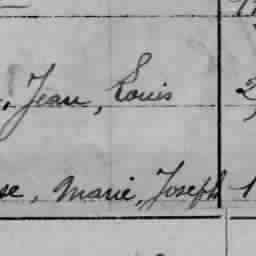 , Jean, Louis 2
se, Marie, Joseph 1